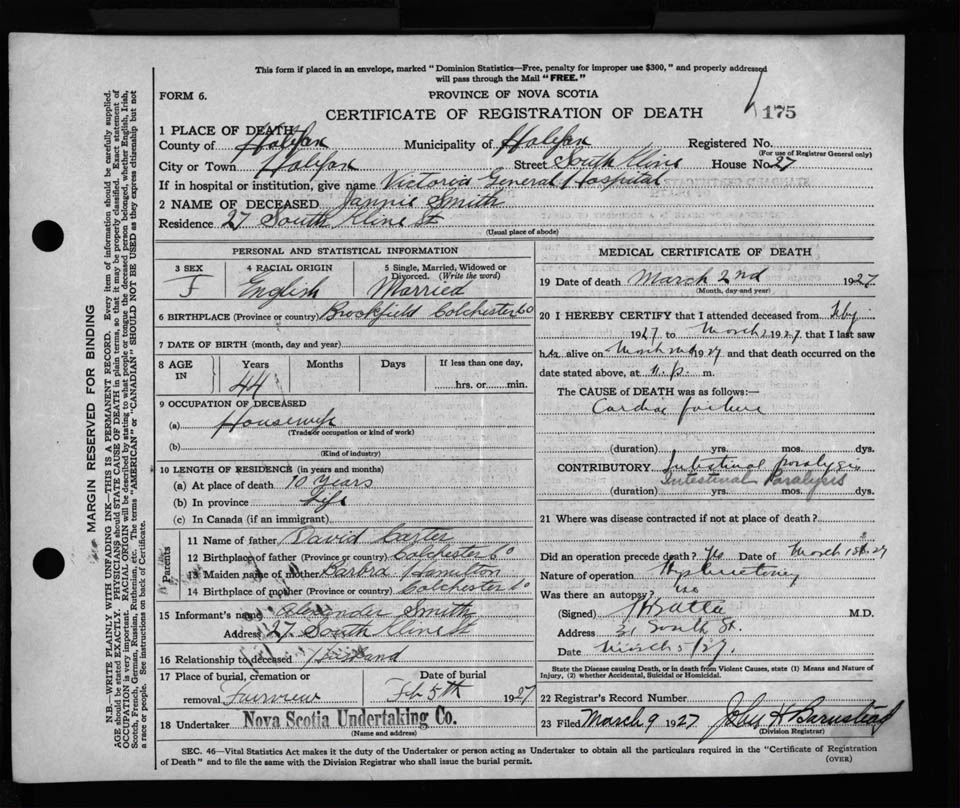 This form if placed in an envelope, marked "Dominion Statistics—Free, penalty for improper use $300," and properly addressed
will pass through the Mail "FREE."
FORM 6.
PROVINCE OF NOVA SCOTIA
CERTIFICATE OF REGISTRATION OF DEATH
175
1 PLACE OF DEATH
County of Halifax Municipality of Halifax Registered No.
(For use of Registrar General only)
City or Town Halifax Street South Kline House No. 27
If in hospital or institution, give name Victoria General Hospital
2 NAME OF DECEASED Jannie Smith
Residence 27 South Kline St
(Usual place of abode)
PERSONAL AND STATISTICAL INFORMATION
3 SEX F
4 RACIAL ORIGIN English
5 Single, Married, Widowed or Divorced. (Write the word) Married
6 BIRTHPLACE (Province or country) Brookfield Colchester Co
7 DATE OF BIRTH (month, day and year)
8 AGE IN Years 44 Months Days If less than one day, hrs. or min.
9 OCCUPATION OF DECEASED
(a) Housewife
(Trade or occupation or kind of work)
(b)
(Kind of industry)
10 LENGTH OF RESIDENCE (in years and months)
(a) At place of death 10 Years
(b) In province Life
(c) In Canada (if an immigrant)
Parents
11 Name of father David Carter
12 Birthplace of father (Province or country) Colchester Co
13 Maiden name of mother Barbra Hamilton
14 Birthplace of mother (Province or country) Colchester Co
15 Informant's name Alexander Smith
Address 27 South Kline St
16 Relationship to deceased Husband
17 Place of burial, cremation or removal Fairview Date of burial Feb 5th 1927
18 Undertaker Nova Scotia Undertaking Co.
(Name and address)
MEDICAL CERTIFICATE OF DEATH
19 Date of death March 2nd 1927
(Month, day and year)
20 I HEREBY CERTIFY that I attended deceased from Feby
19 to March 2 1927 that I last saw
alive on March 1927 and that death occurred on the
date stated above, at p. m.
The CAUSE OF DEATH was as follows:—
Cardiac failure
(duration) yrs. mos. dys.
CONTRIBUTORY Intestinal paralysis
Intestinal Paralysis
(duration) yrs. mos. dys.
21 Where was disease contracted if not at place of death?
Did an operation precede death? Yes Date of March 1st 27
Nature of operation Hysterectomy
Was there an autopsy? no
(Signed) M.D.
Address South St.
Date March 5/27.
State the Disease causing Death, or in death from Violent Causes, state (1) Means and Nature of
Injury, (2) whether Accidental, Suicidal or Homicidal.
22 Registrar's Record Number
23 Filed March 9 1927. Barnstead
(Division Registrar)
SEC. 46—Vital Statistics Act makes it the duty of the Undertaker or person acting as Undertaker to obtain all the particulars required in the "Certificate of Registration
of Death" and to file the same with the Division Registrar who shall issue the burial permit.
(OVER)
MARGIN RESERVED FOR BINDING
N.B.—WRITE PLAINLY WITH UNFADING INK—THIS IS A PERMANENT RECORD. Every item of information should be carefully supplied.
AGE should be stated EXACTLY. PHYSICIANS should STATE CAUSE OF DEATH in plain terms, so that it may be properly classified. Exact statement of
OCCUPATION is very important. RACIAL ORIGIN will be described by stating to what people or tongue the deceased person belonged, whether English, Irish,
Scotch, French, German, Russian, Ruthenian, etc. The terms "AMERICAN" or "CANADIAN" SHOULD NOT BE USED as they express citizenship but not
a race or people. See instructions on back of Certificate.